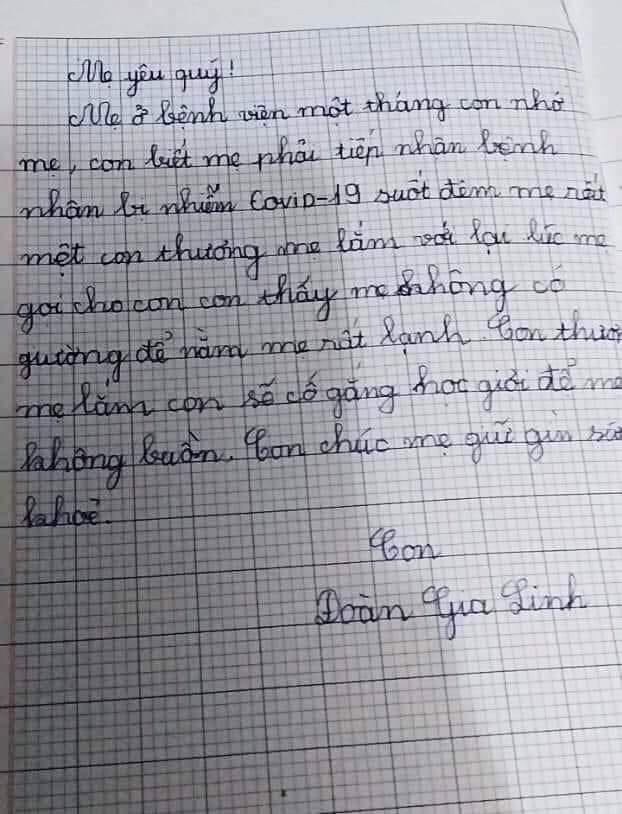 Mẹ yêu quý!
Mẹ ở bệnh viện một tháng con nhớ
mẹ, con biết mẹ phải tiếp nhận bệnh
nhân bị nhiễm Covid-19 suốt đêm mẹ rất
mệt con thương mẹ lắm với lại lúc mẹ
gọi cho con con thấy mẹ không có
guường để nằm mẹ rất lạnh. Con thươ
mẹ lắm con sẽ cố gắng học giỏi để mẹ
không buồn. Con chúc mẹ giữ gìn sứ
khoẻ.
Con
Đoàn Gia Linh